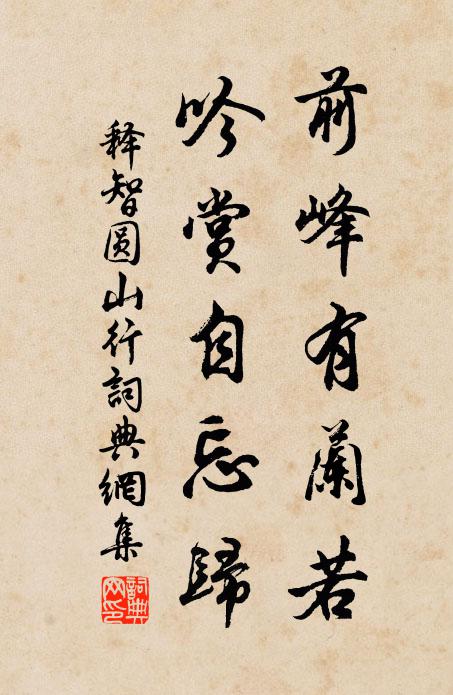 前峰有蘭若
吟賞自忘歸
释智圆山行詞典網集
詞典网印